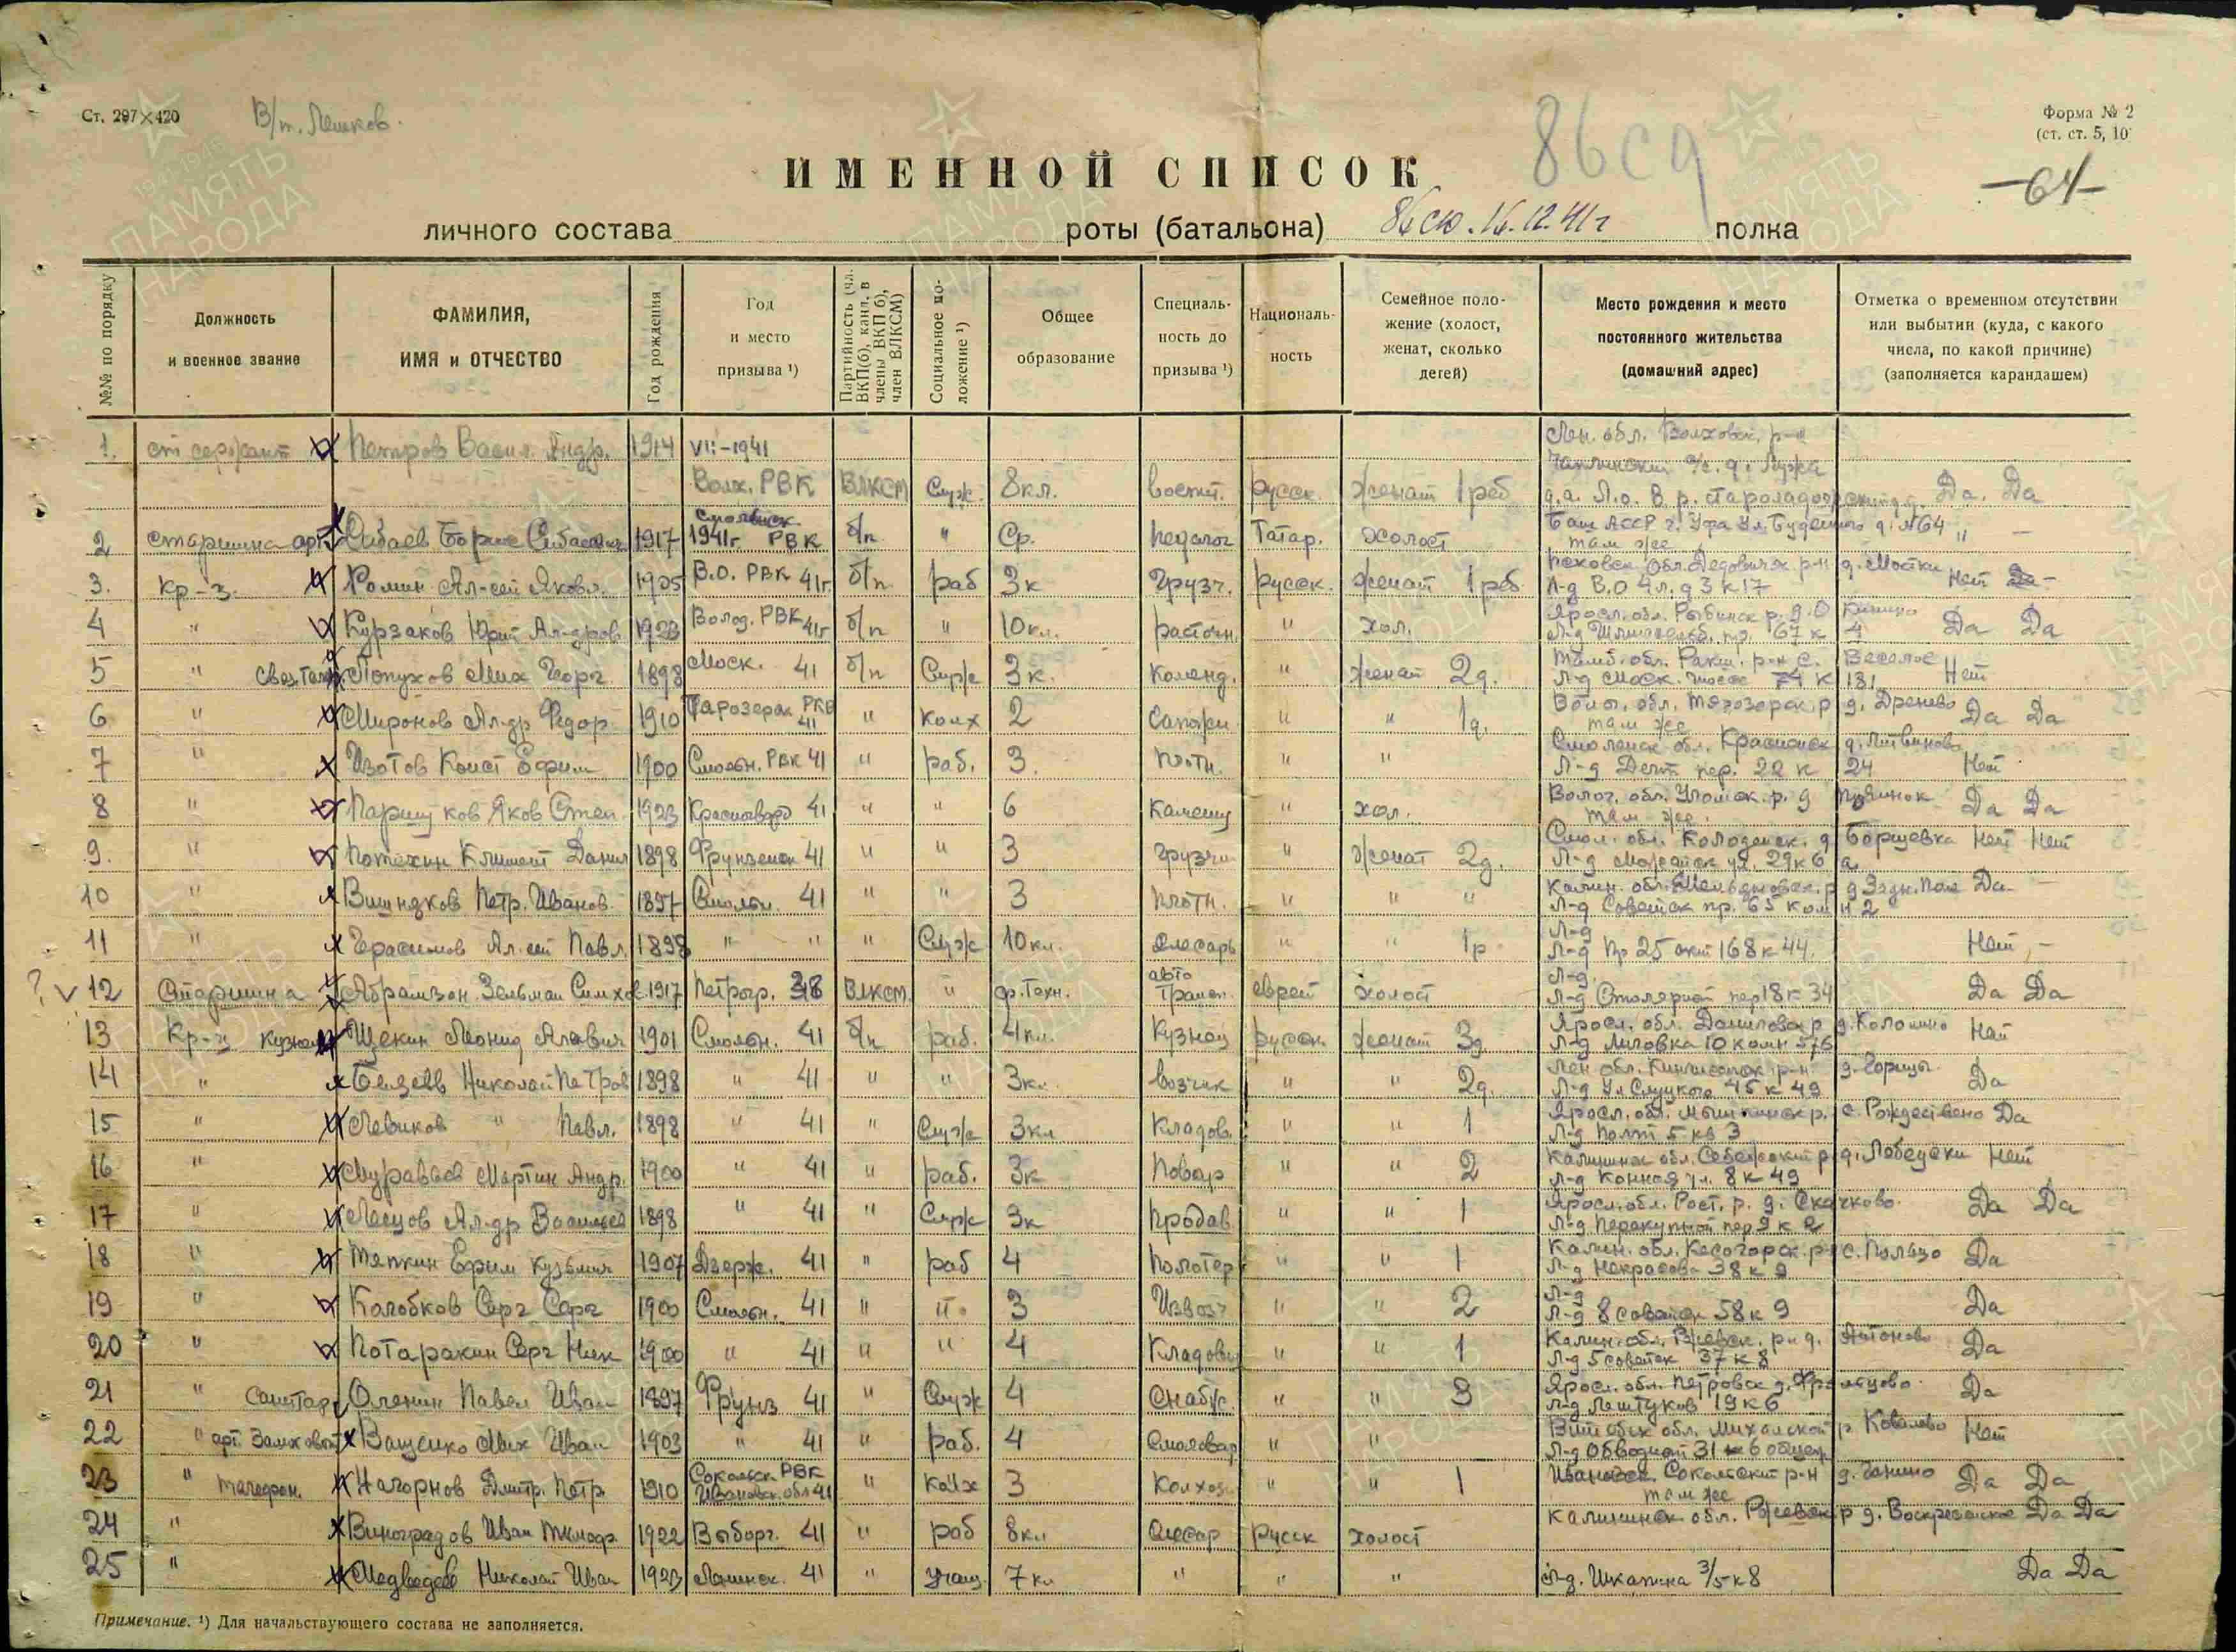 Ст. 297×420 В/т. Лешков. 86 сд Форма № 2
(ст. ст. 5, 10)
ИМЕННОЙ СПИСОК -64-
личного состава роты (батальона) 86 сд. 16.12.41г полка
№№ по порядку Должность и военное звание ФАМИЛИЯ, ИМЯ и ОТЧЕСТВО Год рождения Год и место призыва ¹) Партийность (чл. ВКП(б), канд. в члены ВКП б), член ВЛКСМ) Социальное положение ¹) Общее образование Специальность до призыва ¹) Национальность Семейное положение (холост, женат, сколько детей) Место рождения и место постоянного жительства (домашний адрес) Отметка о временном отсутствии или выбытии (куда, с какого числа, по какой причине) (заполняется карандашем)
1. ст сержант Петров Васил. Андр. 1914 VII-1941 Лен. обл. Волховск. р-н
д. Лужа
Волх. РВК ВЛКСМ Служ. 8кл. русск. женат 1 реб Да. Да
2 старшина арт. Сибаев Борис 1917 Смольнск. 1941г. РВК б/п " Ср. педагог Татар. холост Баш АССР г. Уфа Ул. Буденного д. №64 " -
там же
3. Кр-ц. Ромин Ал-сей Яковл. 1905 В.О. РВК 41г. б/п раб 3к Грузч. русск. женат 1 реб. Псковск. обл. Дедовичск. р-н д. Мостки Нет -
Л-д В.О 4 л. д 3 к 17
4 " Курзаков Юрий Ал-дров. 1923 Волод. РВК 41г. б/п " 10кл. расточн. " хол. Яросл. обл. Рыбинск р. д. Да Да
Л-д пр. 67 к 4
5 " Связ. Теле Лопухов Мих Георг. 1898 Моск. 41 б/п Служ 3к. Команд. " женат 2д. Тамб. обл. Ракш. р-н с. Веселое Нет
Л-д Моск. шоссе 74 к 131
6 " Миронов Ал-др Федор. 1910 РКВ 41 " колх 2 Сапожн. " " 1д. Волог. обл. р д. Дреново Да Да
там же
7 " Изотов Конст Ефим. 1900 Смольн. РВК 41 " раб. 3. плотн. " " Смоленск обл. Краснинск д. Литвиново Нет
Л-д Дегт. пер. 22 к 24
8 " Паршуков Яков Степ. 1923 Красногвард 41 " " 6 Каменщ " хол. Волог. обл. Уломск. р. д Да Да
там же.
9. " Потехин Климент Данил 1898 Фрунзенск 41 " " 3 грузчик " Женат 2д. Смол. обл. Колоданск. д Борщевка Нет Нет
Л-д Можайск ул. 29 к 6 а.
10 " Петр. Иванов. 1897 Смольн. 41 " " 3 плотн. " " " Калин. обл. р д Задн. Поле Да -
Л-д Советск пр. 65 ком н 2
11 " Герасимов Ал-ей Павл. 1898 " " " Служ 10кл. слесарь " " 1р Л-д Нет, -
Л-д Пр 25 окт 168 к 44.
? v 12 Старшина Абрамзон Зельман Симхов. 1917 Петрогр. 38 ВЛКСМ " ф. Техн. авто Трансп. еврей холост Л-д, Да Да
Л-д Столярный пер 18 к 34
13 Кр-ц Кузнец Щекин Леонид 1901 Смольн. 41 б/п раб. 4кл. Кузнец русск. женат 3д. Яросл. обл. Даниловск р д. Колокино Нет
Л-д Лиговка 10 комн 576
14 " Беляев Николай Петров 1898 " 41 " " 3кл. возчик " " 2д. Лен. обл. Кингисепск р-н д. Горицы Да
Л-д Ул Слуцкого 45 к 49
15 " Левиков " Павл. 1898 " 41 " Служ 3кл Кладов. " " 1 Яросл. обл. Мышкинск р. с. Рождествено Да
Л-д Полт 5 кв 3
16 " Муравьев Мартин Андр. 1900 " 41 " раб. 3к Повар " " 2 Калининск обл. Себежский р д. Лебедеки Нет
Л-д Конная ул. 8 к 49
17 " Ал-др Васильев 1898 " 41 " Служ 3к продав. " " 1 Яросл. обл. Рост. р. д. Скачково Да Да
Л-д Перекупной пер 9 к 2
18 " Тяпкин Ефим Кузьмич 1907 Дзерж. 41 " раб 4 Полотер " " 1 Калин. обл. Кесогорск. р с. Пользо Да
Л-д Некрасова 38 к 9
19 " Колобков Серг Серг 1900 Смольн. 41 " " 3 Извоз " " 2 Л-д Да
Л-д 8 советск 58 к 9
20 " Потаракин Серг Ник 1900 " 41 " " 4 Кладовщ " " 1 Калин. обл. Ржевск. р-н д. Антоново Да
Л-д 5 советск 37 к 8
21 " Санитар Оленин Павел Иван 1897 Фрунз 41 " Служ 4 Снабж. " " 3 Яросл. обл. Петровск д. Да
Л-д Лештуков 19 к 6
22 " арт. Замковый Ващенко Мих Иван 1903 " 41 " раб. 4 Смоловар " " Витебск обл. р. Ковалево Нет
Л-д Обводный 31 к 6 общеж
23 " телефон. Нагорнов Дмитр. Петр 1910 Сокольск РВК Ивановск. обл 41 " колх 3 Колхоз. " " 1 Ивановск. Сокольский р-н д. Ганино Да Да
там же
24 " Виноградов Иван Тимоф. 1922 Выборг. 41 " раб 8кл Слесар русск холост Калининск. обл. Ржевск р д. Воскресенское Да Да
25 " Медведев Николай Иван 1923 Ленинск. 41 " учащ. 7 кл " " " Л-д. Шкапина 3/5 к 8 Да Да
Примечание. ¹) Для начальствующего состава не заполняется.